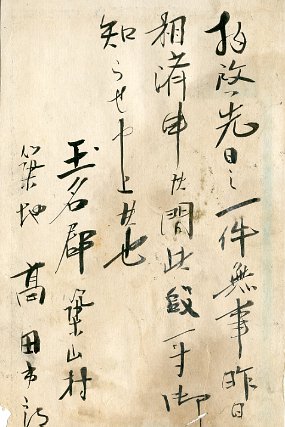 拝啓 先日之一件無事昨日
相済申候間此段一寸御
知らせ申上候也
玉名郡築山村
築地 高田市次